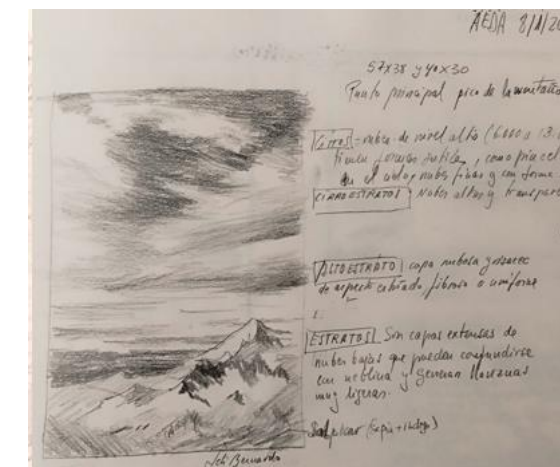 AEDA 8/1/20
57x38 y 40x30
Punto principal pico de la montaña
CIRROS = nubes de nivel alto (6000 a 13
tienen formas sutiles, como pincel
en el cielo, nubes finas y con forma.
CIRROESTRATOS Nubes altas y transpare
ALTOESTRATO capa nubosa grisacea
de aspecto estriado, fibroso o uniforme
ESTRATOS Son capas extensas de
nubes bajas que pueden confundirse
con neblina y generan lloviznas
muy ligeras.
Salpicar
Leti Bernardo